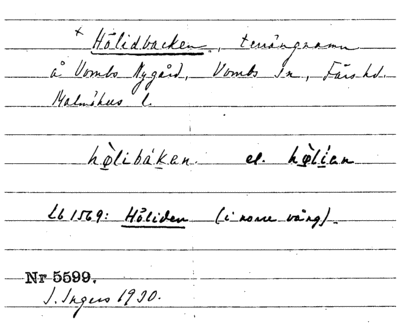 + Hölidbacken, terrängnamn
å Vombs Nygård, Vombs sn, Färs hd.
Malmöhus l.
hø̀libáken. el. hø̀lían
Lb 1569: Höliden (i norre vång).
Nr 5599.
I. Ingers 1930.